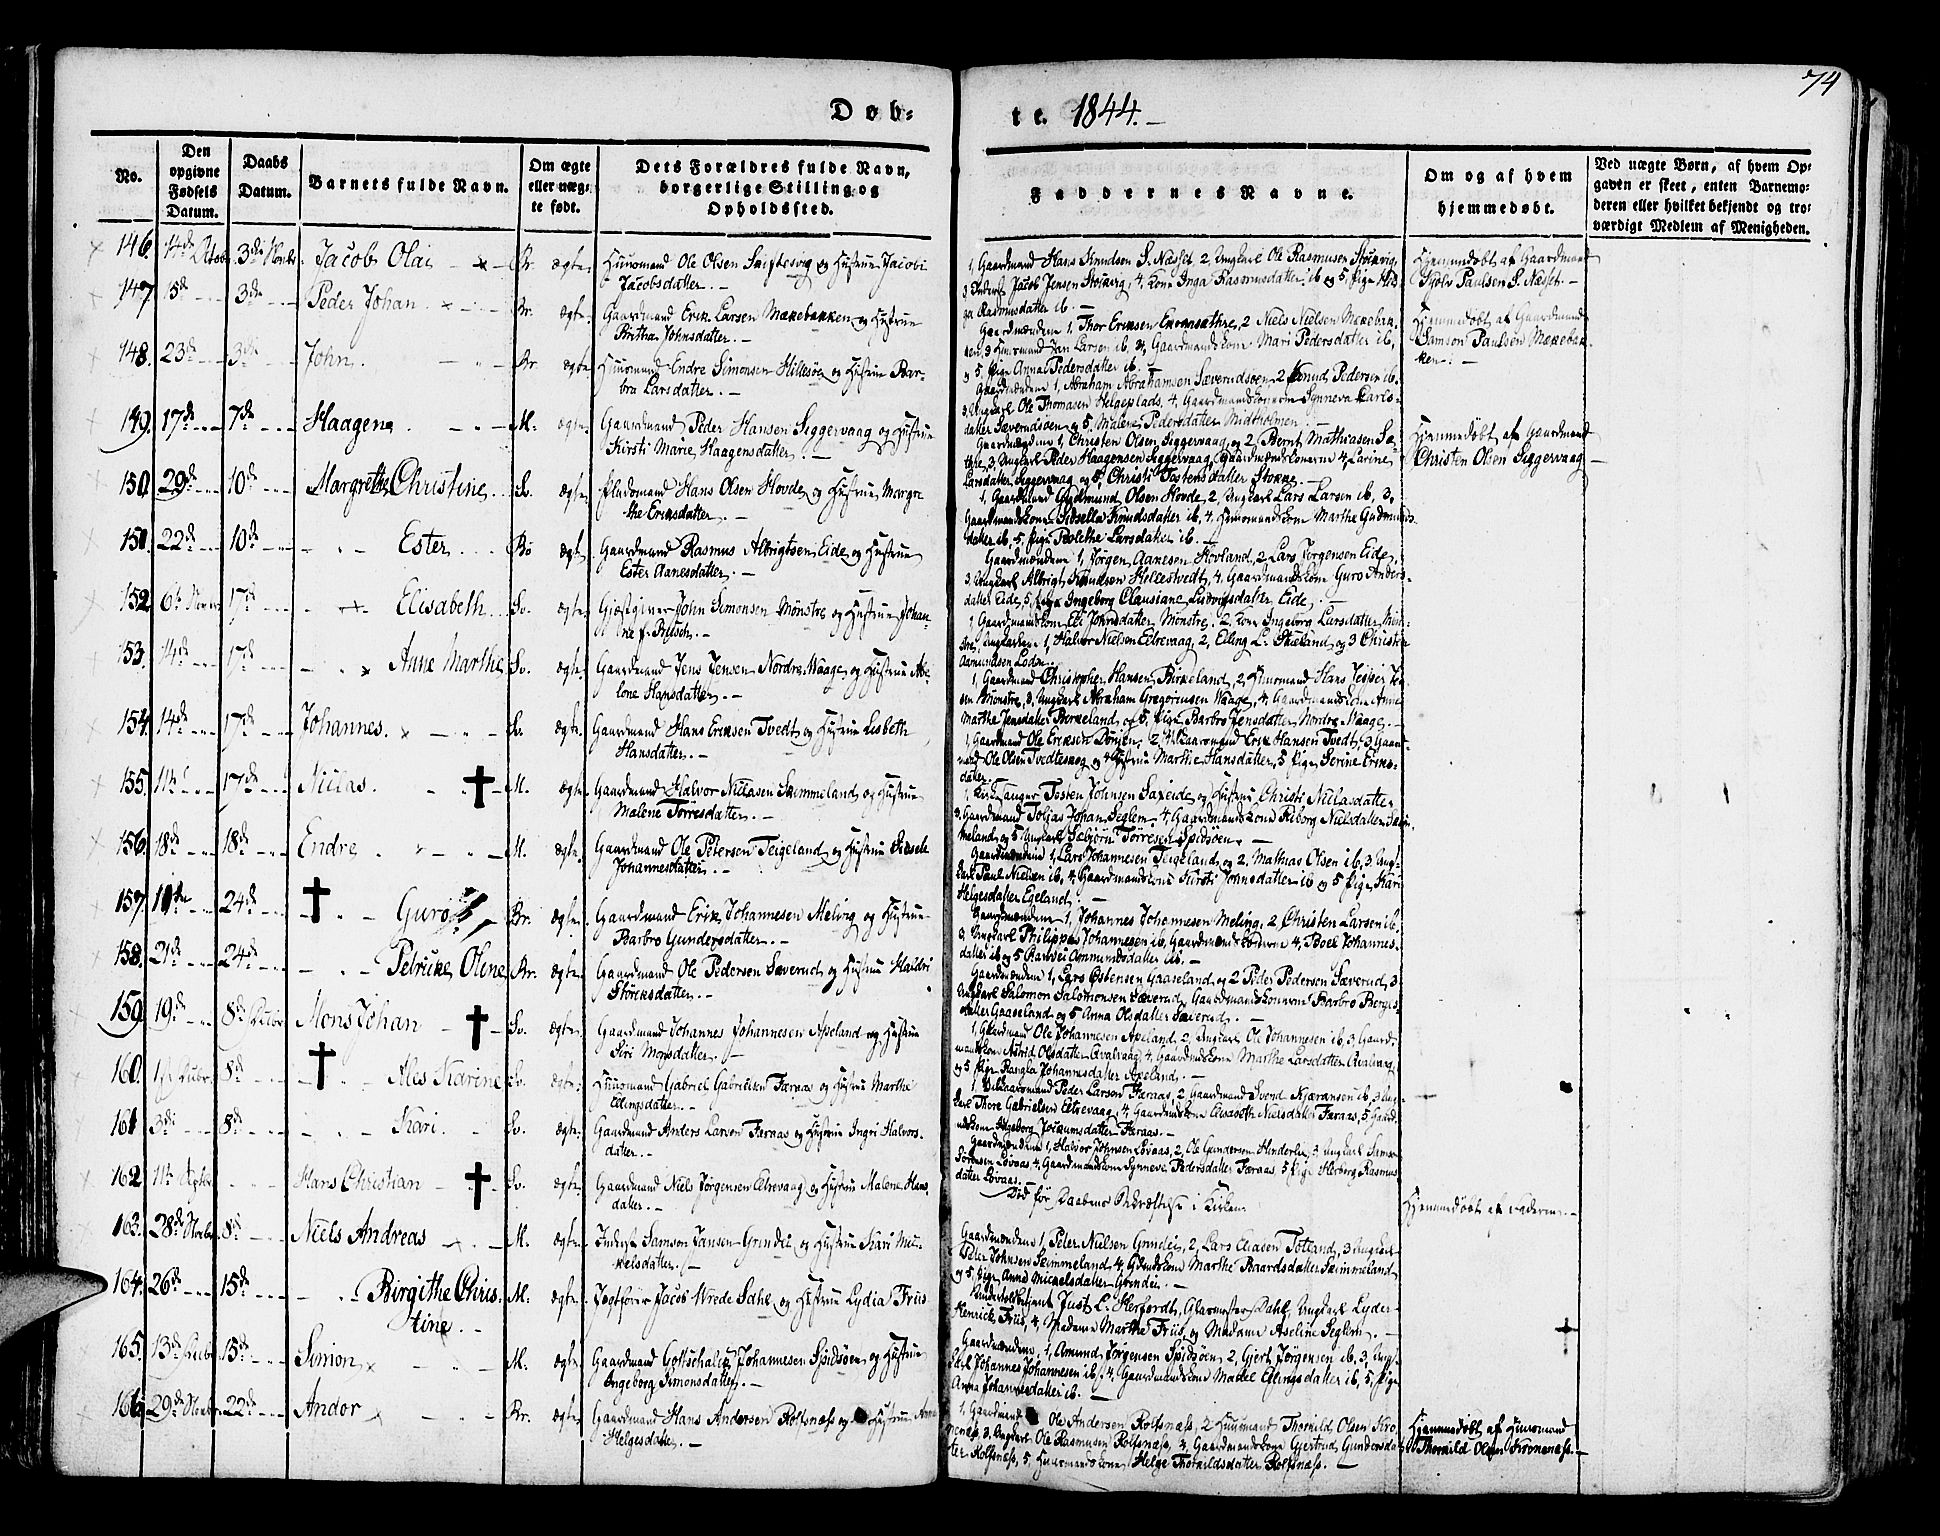 74
Døb-
te. 1844.-
No.
Den opgivne Fødsels Datum.
Daabs Datum.
Barnets fulde Navn.
Om ægte eller uægte født.
Dets Forældres fulde Navn, borgerlige Stilling og Opholdssted.
Faddernes Navne.
Om og af hvem hjemmedøbt.
Ved uægte Børn, af hvem Opgaven er skeet, enten Barnemoderen eller hvilket bekjendt og troværdigt Medlem af Menigheden.
146. 14de 3die Jacob Olai Br. ægte Huusmand Ole Olsen og Hustrue Jacobi
Jacobsdatter.-
1, Gaardmand Hans Knudsen S. Næsset 2 Ungkarl Ole Rasmusen
3 Jacob Jensen 4, Kone Inga Rasmusdatter ib og 5, Pige
Rasmusdatter ib -
Hjemmedøbt af Gaardmand
Paulsen S. Næset.-
147 5de 3die Peder Johan Br. ægte. Gaardmand Erik Larsen Mækebakken og Hustrue
Brithe Johnsdatter.-
Gaardmændene 1, Thor Eriksen 2 Niels Nielsen
3 Huusmand Jan Larsen ib 4, Gaardmandskone Mari Pedersdatter ib,
og 5, Pige Anna Pedersdatter ib.-
Hjemmedøbt af Gaardmand
Samson Paulsen
148. 23de 3die John. Br. ægte Huusmand Endre Simonsen Hillesøe og Hustrue Bar-
bra Larsdatter.-
Gaardmændene 1, Abraham Abrahamsen Sæverudsøen 2 Knud Pedersen ib.
3, Ungkarl Ole Thomasen Helgeplads 4, Gaardmandskonerne Synneva Karls-
datter Sæverudsøen og 5, Malene Pedersdatter Midtholmen.-
149. 17de 7de Haagen. M. ægte. Gaardmand Peder Hansen Siggervaag og Hustrue
Kirsti Marie Haagensdatter.-
Gaardmændene 1, Christen Olsen Siggervaag og 2 Bernt Mathiasen
3, Ungkarl Peder Haagensen Siggervaag, Gaardmandskonerne 4, Larine
Larsdatter Siggervaag og 5, Christi Tostensdatter Stokke.-
Hjemmedøbt af Gaardmand
Christen Olsen Siggervaag
150. 29de 10de Margrethe Christine Sv. ægte. Pladsmand Hans Olsen Hovde og Hustrue Margre
the Eriksdatter.-
1, Gaardmand Gudmund Olsen Hovde 2, Ungkarl Lars Larsen ib, 3,
Gaardmandskone Sidsella Knudsdatter ib, 4, Huusmandskone Marthe Gudmunds
datter ib, 5, Pige Bolethe Larsdatter ib.-
151. 22de 10de Ester Br ægte Gaardmand Rasmus Albrigtsen Eide og Hustrue
Ester Aanesdatter.-
Gaardmændene 1, Jørgen Aanesen Hovland, 2 Lars Jørgensen Eide,
3, Ungkarl Albrigt Knudsen Hellestvedt, 4, Gaardmandskone Guro Anders-
datter Eide, 5, Pige Ingeborg Clausiane Ludvigsdatter Eide,
152 6te 17de Elisabeth Sv. ægte Gjæstgiver John Simonsen Mønstre og Hustrue Johan-
ne f. Fritsch.-
1 Gaardmandskone Eli Johnsdatter Mønstre, 2, Kone Ingeborg Larsdatter
Ungkarlene 1, Halvor Nielsen Eltrevaag, 2, Elling L. Skieland og 3 Christen
Aamundsen
153. 14de 17de Anne Marthe Sv. ægte. Gaardmand Jens Jensen Nordre Waage og Hustrue Abe-
lone Hansdatter.-
1, Gaardmand Christopher Hansen Birkeland, 2, Huusmand Hans Jesper
Mønstre, 3, Ungkarl Abraham Gregoriusen Waage, 4, Gaardmandskone Anne
Marthe Jensdatter Birkeland, og 5, Pige Barbro Jensdatter Nordre Waage.-
154. 14de 17de Johannes. Sv. ægte. Gaardmand Hans Eriksen Tvedt og Hustrue Lisbeth
Hansdatter.-
1, Gaardmand Ole Eriksen 2, Erik Hansen Tvedt, 3, Gaard-
mand Ole Olsen og 4 Hustrue Marthe Hansdatter, 5 Pige Serine Eriks-
datter.-
155. 11te 17de Niclas. M. ægte. Gaardmand Halvor Niclasen Skimmeland og Hustrue
Malene Tørresdatter.-
1, Kirkesanger Tosten Johnsen Saxeide og Hustrue Christi Niclasdatter
3, Gaardmand Tobias Johan Seglem, 4, Gaardmandskone Riborg Nielsdatter
og 5 Ungkarl Tørresen Spidsøen.-
156. 18de 18de Endre M. ægte. Gaardmand Ole Petersen Teigeland og Hustrue
Johannesdatter.-
Gaardmændene 1, Lars Johannesen Teigeland og 2, Mathias Olsen ib, 3, Ung-
karl Paul Nielsen ib, 4, Gaardmandskone Kirsti Johnsdatter ib og 5 Pige, Kari
Helgesdatter Egeland.-
157. 11te 24de Guro Br. ægte. Gaardmand Erik Johannesen Meling og Hustrue
Barbro Gundersdatter.-
Gaardmændene 1, Johannes Johannesen Meling, 2 Christen Larsen ib,
3. Ungkarl Philippus Johannesen ib, Gaardmandskonerne 4, Boel Johannes-
datter ib og 5 Ranvei Aamundsdatter ib.-
158. 21de 24de Petricke Oline Br. ægte. Gaardmand Ole Pedersen Sæverud og Hustrue Haldri
Størcksdatter.-
Gaardmændene 1, Lars Østensen Gaaseland og 2 Peder Pedersen Sæverud, 3
Ungkarl Salomon Salomonsen Sæverud, Gaardmandskonerne Barbro Berges-
datter Gaaseland og 5 Anna Olsdatter Sæverud.-
159. 19de 8de Mons Johan Sv. ægte. Gaardmand Johannes Johannesen Apeland og Hustrue
Siri Monsdatter.-
1, Gaardmand Ole Johannesen Apeland, 2, Ungkarl Ole Johannesen ib, 3, Gaard-
mandskone Astrid Olsdatter Qvalvaag, 4, Gaardmandskone Marthe Larsdatter Qvalvaag,
og 5, Pige Rangla Johannesdatter Apeland.-
160. 8de Ales Karine Sv. ægte. Huusmand Gabriel Gabrielsen Færaas og Hustrue Marthe
Ellingsdatter.-
1, Peder Larsen Færaas, 2, Gaardmand Svend Kjæransen ib, 3 Ung-
karl Thore Gabrielsen Eltrevaag, 4, Gaardmandskone Elisabeth Nielsdatter Færaas, 5, Gaard-
mandskone Ingeborg Joachumsdatter Færaas.-
161 3die 8de Kari Sv. ægte. Gaardmand Anders Larsen Færaas og Hustrue Ingri Halvors-
datter.-
Gaardmændene 1, Halvor Johnsen Løvaas, 2, Ole Gundersen Hinderlie, 3 Ungkarl
Sørensen Løvaas, 4, Gaardmandskone Synneve Pedersdatter Færaas 5, Pige Herborg Rasmus
datter Løvaas.-
162. 11te Hans Christian Sv. ægte. Gaardmand Niels Jørgensen Eltrevaag og Hustrue Malene Hans-
datter.-
Død før Daabens Bekræftelse i Kirken
Hjemmedøbt af Faderen.-
163. 28de 8de Niels Andreas M. ægte. Inderst Samson Jansen Grindei og Hustrue Kari Mi-
kelsdatter.-
Gaardmændene 1, Peter Nielsen Grindei, 2, Lars Eliasen Totland, 3 Ungkarl
Peter Johnsen Skimmeland, 4, Gaardmandskone Marthe Baardsdatter Skimmeland
og 5, Pige Anne Mickelsdatter Grindei.-
164. 26de 15de Birgithe Chris-
tine.- M. ægte. Jægtfører Jacob Wrede Sahl og Hustrue Lydia Friis
Just C. Herfordt, Glarmester Dahl, Ungkarl Lyder
Henrick Friis, 4, Madame Marthe Friis, og Madame Aseline Seglem.-
165. 13de 15de Simon M. ægte. Gaardmand Gottschalck Johannesen Spidsøen og Hustrue
Ingeborg Simonsdatter.-
Gaardmændene 1, Amund Jørgensen Spidsøen, 2, Gjert Jørgensen ib, 3, Ung-
karl Johannes Johannesen ib, 4, Gaardmandskone Malene Ellingsdatter ib, 5, Pige
Anna Johannesdatter ib.-
166. 29de 22de Andor Br. ægte. Gaardmand Hans Andersen Rolfsnæss og Hustrue Anna
Helgesdatter.-
1, Gaardmand Ole Andersen Rolfsnæss, 2 Huusmand Thorkild Olsen Kro-
næss, 3, Ungkarl Ole Rasmusen Rolfsnæss, 4, Gaardmandskone Gjertrud Gundersdat-
ter Rolfsnæss, 5, Huusmandskone Helge Thorkildsdatter Rolfsnæss.-
Hjemmedøbt af Huusmand
Thorkild Olsen Kronæss.-